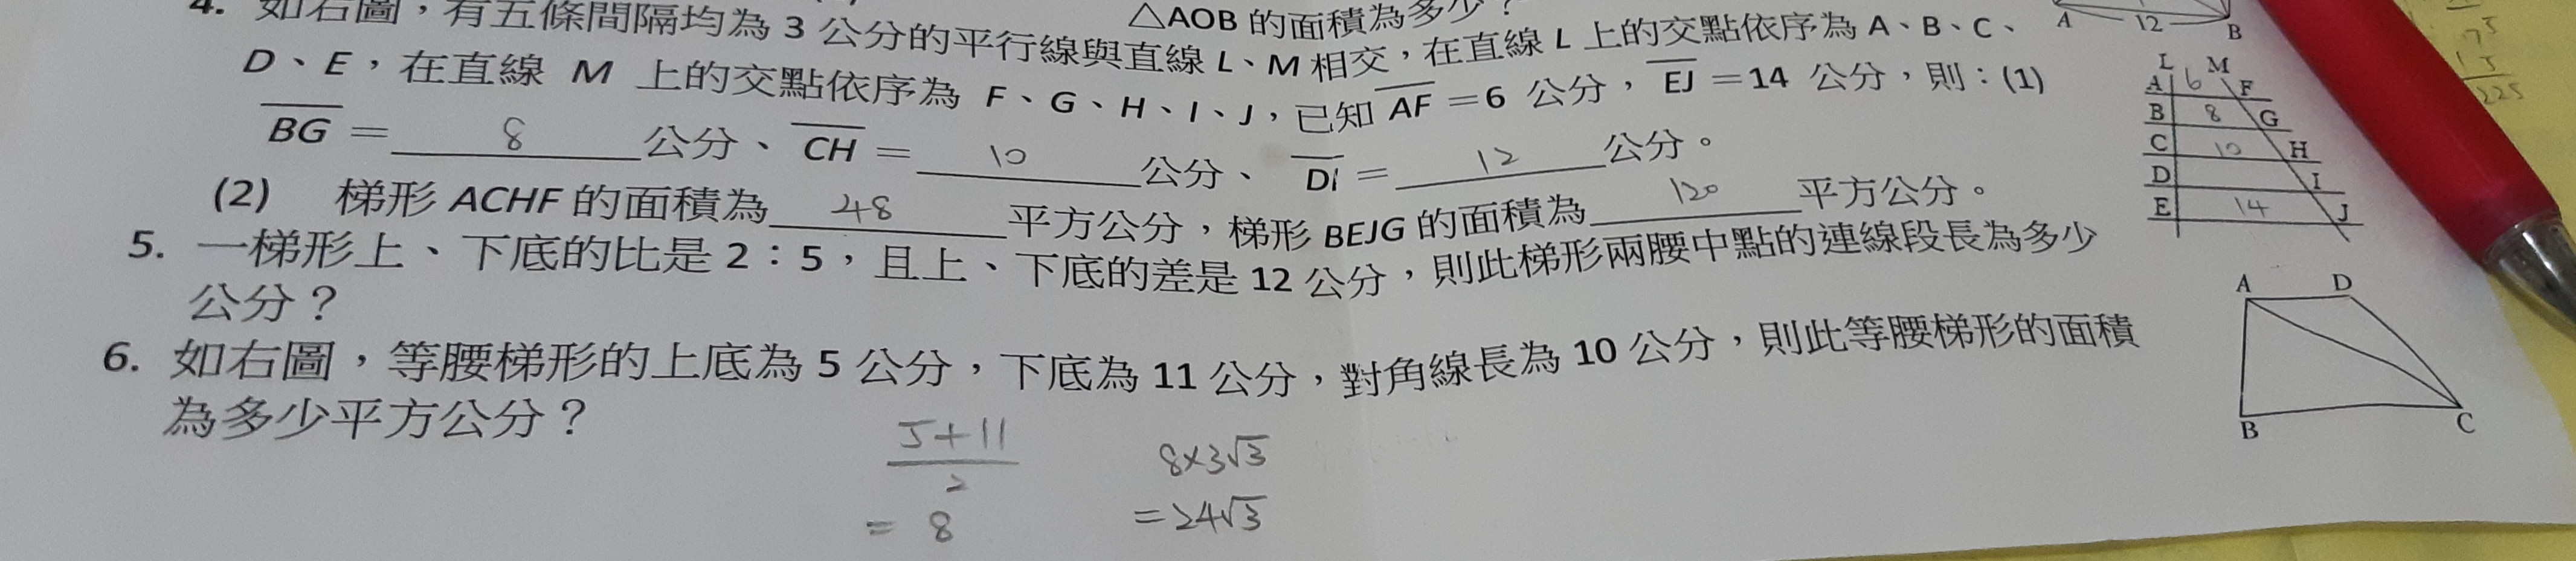 △AOB 的面積為多少？
A 12 B
4. 如右圖，有五條間隔均為 3 公分的平行線與直線 L、M 相交，在直線 L 上的交點依序為 A、B、C、
D、E，在直線 M 上的交點依序為 F、G、H、I、J，已知 AF =6 公分， EJ =14 公分，則：(1)
BG = 8 公分、 CH = 10 公分、 DI = 12 公分。
(2) 梯形 ACHF 的面積為 48 平方公分，梯形 BEJG 的面積為 120 平方公分。
L M
A 6 F
B 8 G
C 10 H
D I
E 14 J
5. 一梯形上、下底的比是 2：5，且上、下底的差是 12 公分，則此梯形兩腰中點的連線段長為多少
公分？
6. 如右圖，等腰梯形的上底為 5 公分，下底為 11 公分，對角線長為 10 公分，則此等腰梯形的面積
為多少平方公分？
A D
B C
5+11
2
= 8
8×3√3
=24√3
75
15
225